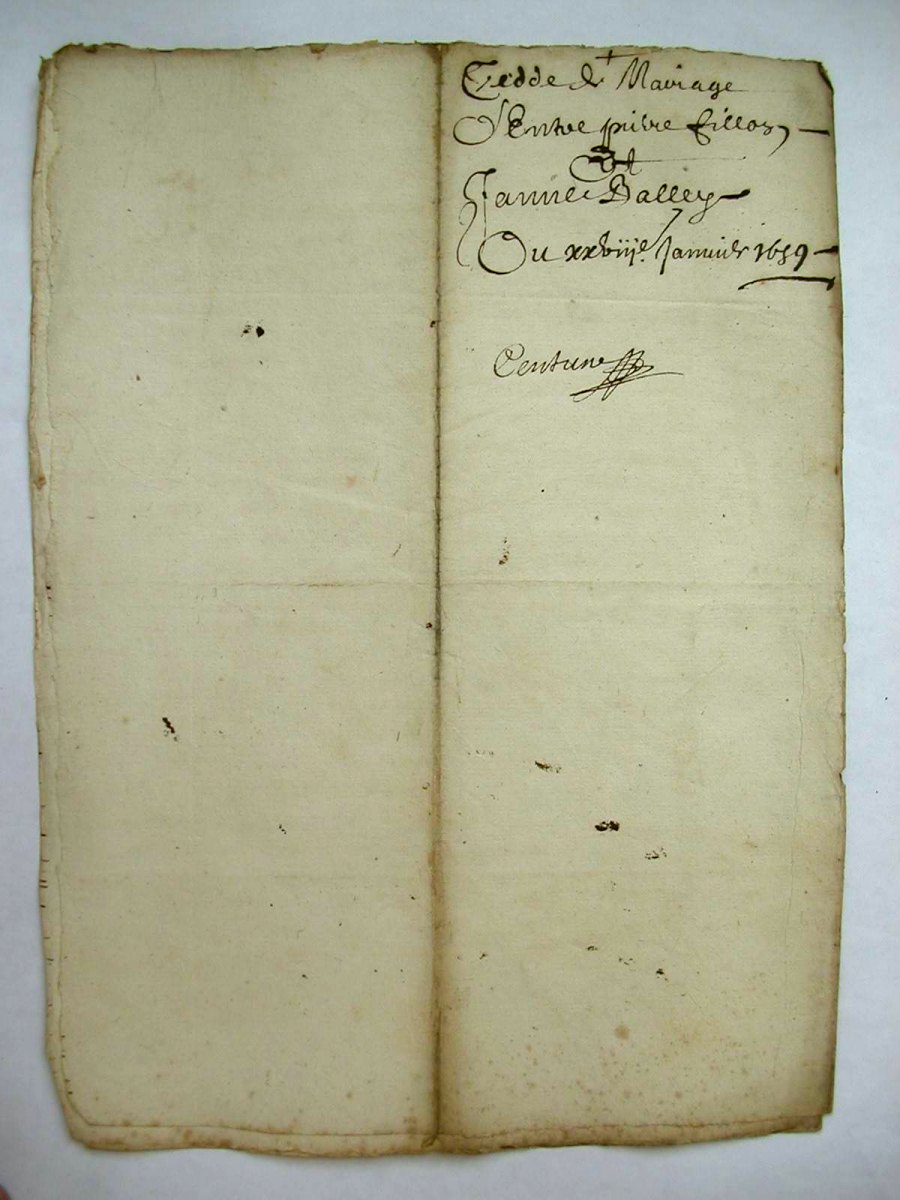 Cedde de Mariage
D'Entre pierre fillon
Et
Janne Balley
Du xxviije. Janvier 1659
Centune